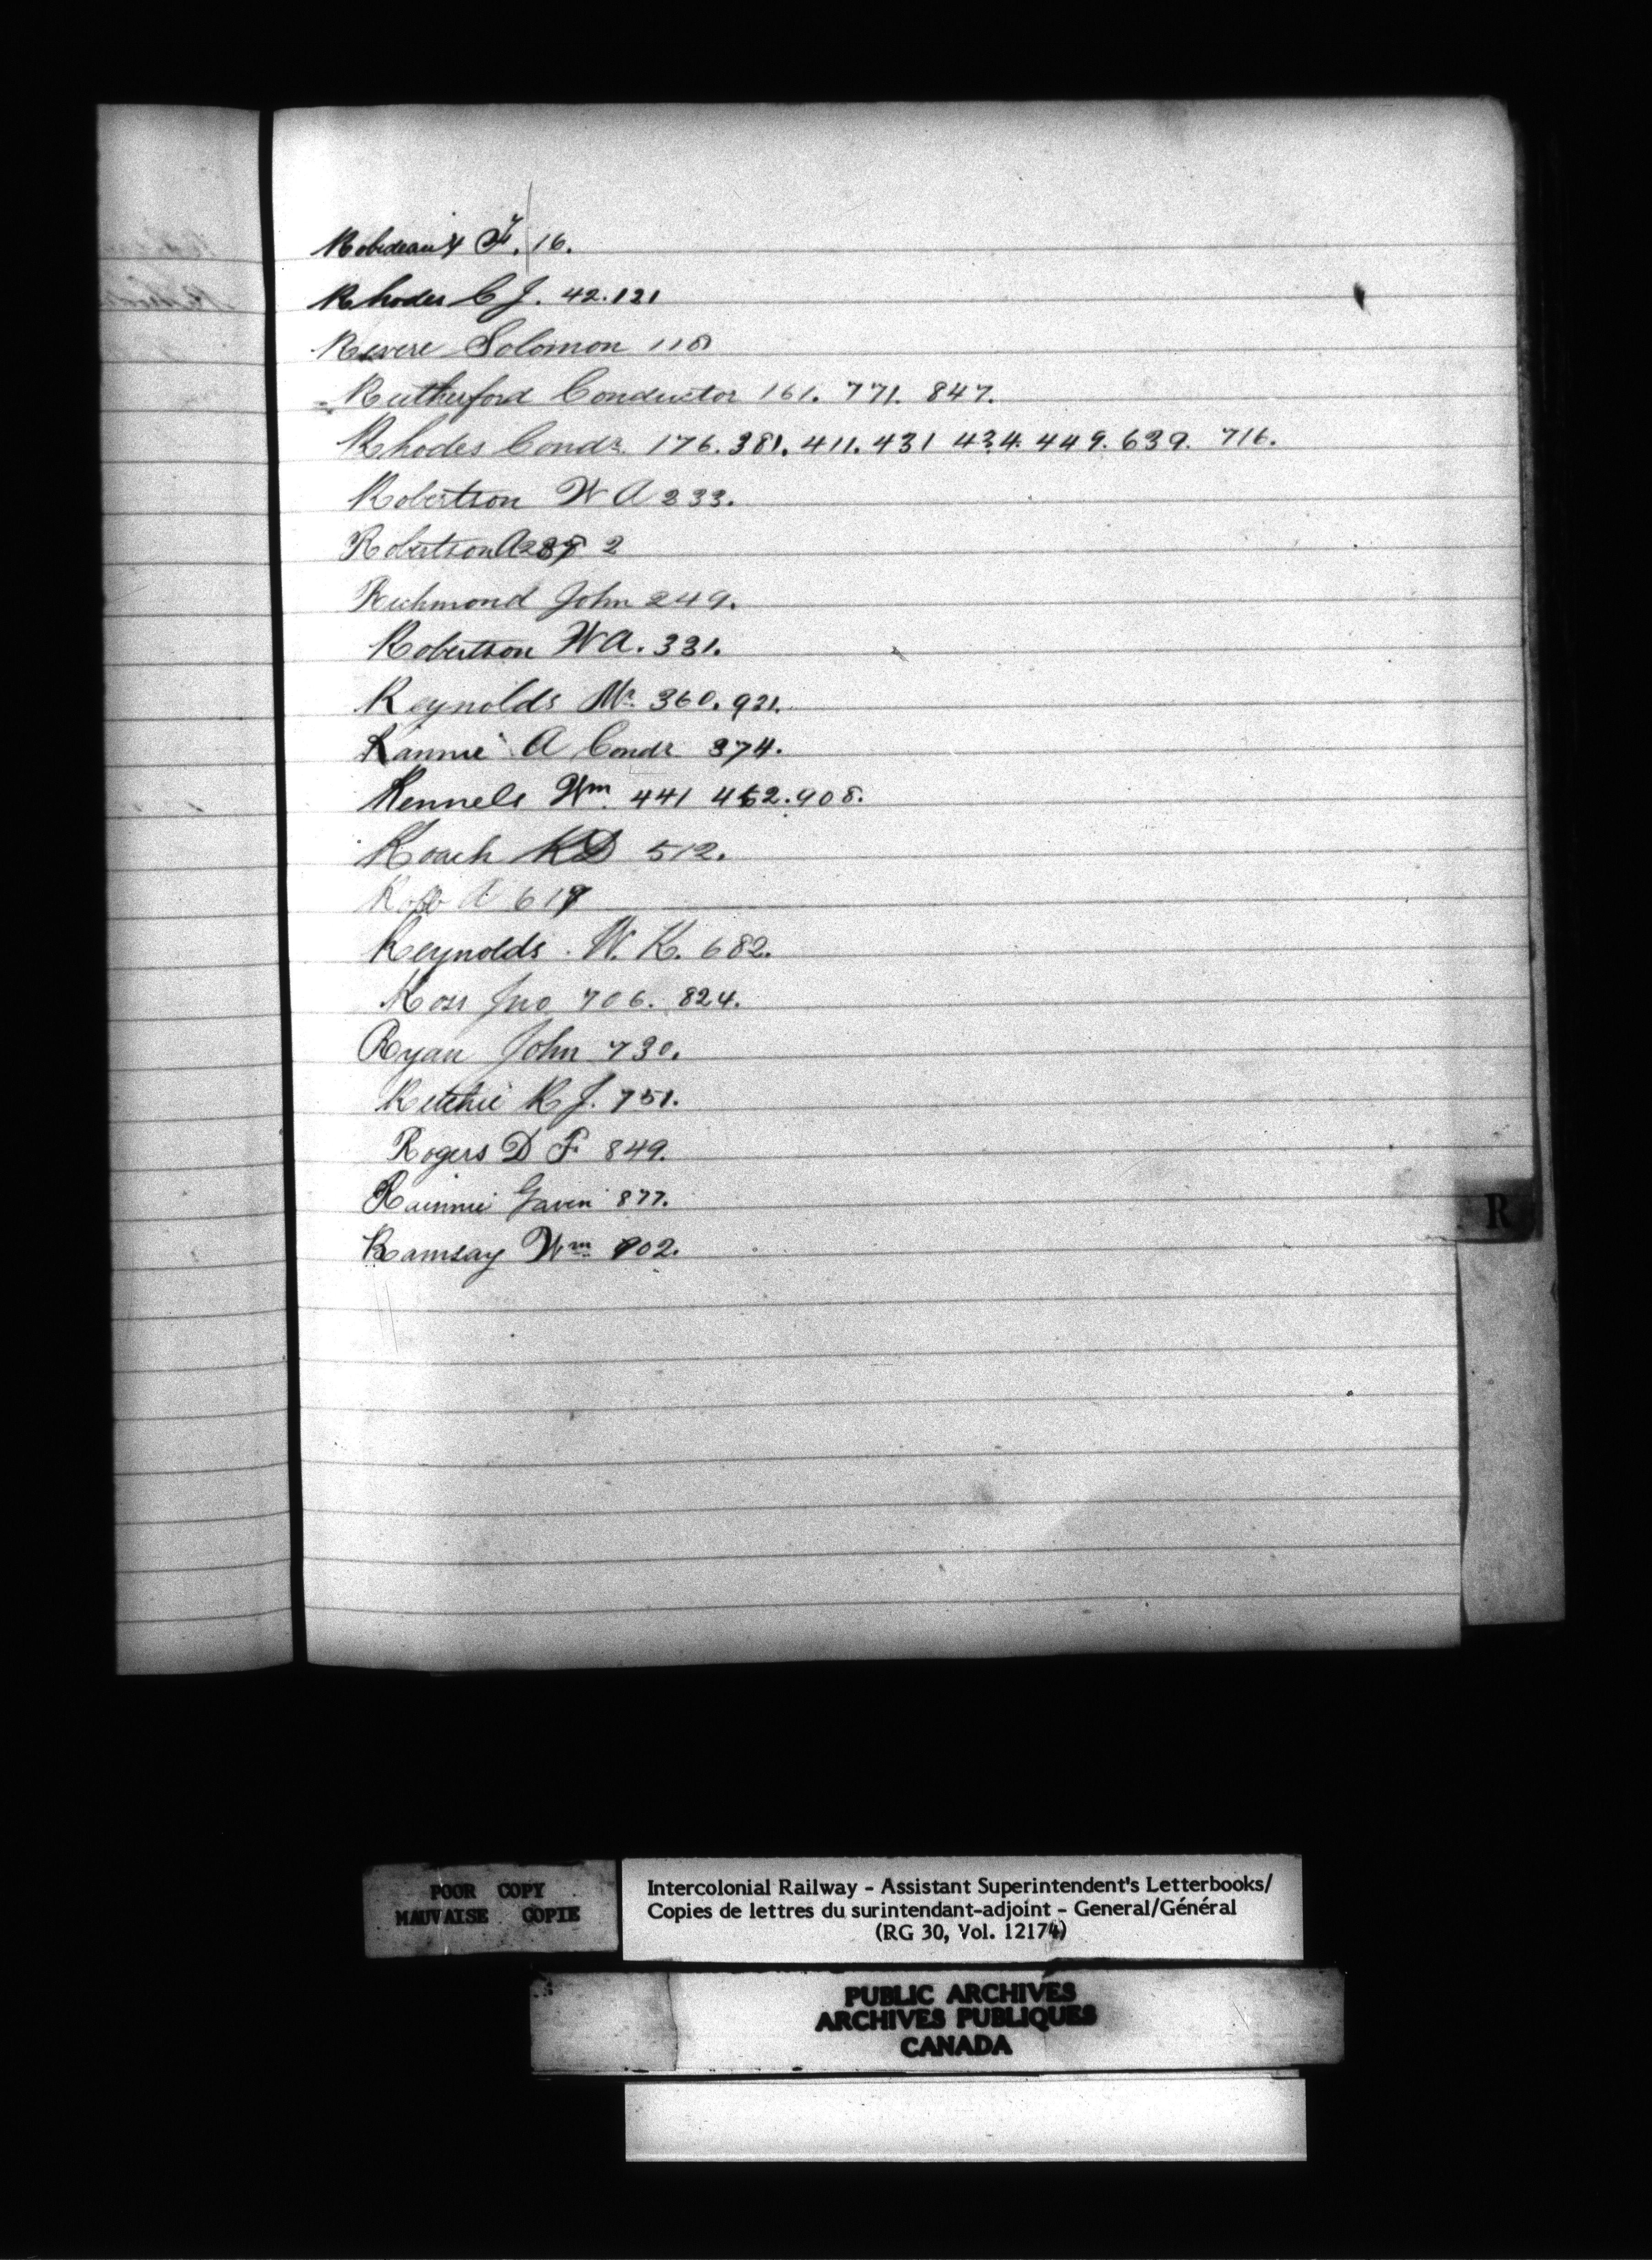 Robideaux F. 16.
Rhodes C J. 42. 121
Revere Solomon 118
Rutherford Conductor 161. 771. 847.
Rhodes Condr. 176. 381. 411. 431 434. 449. 639. 716.
Robertson W A 233.
Robertson A 2
Richmond John 249.
Robertson W A. 331.
Reynolds Mr. 360. 921.
Rannie A Condr 374.
Rennels Wm. 441 452. 908.
Roach R D 512.
Robb A 619
Reynolds. W. K. 682.
Ross Jno 706. 824.
Ryan John 730.
Ritchie R J. 751.
Rogers D F 849.
Rainnie Gavin 877.
Ramsay Wm 902.
R
POOR COPY
MAUVAISE COPIE
Intercolonial Railway - Assistant Superintendent's Letterbooks/
Copies de lettres du surintendant-adjoint - General/Général
(RG 30, Vol. 12174)
PUBLIC ARCHIVES
ARCHIVES PUBLIQUES
CANADA